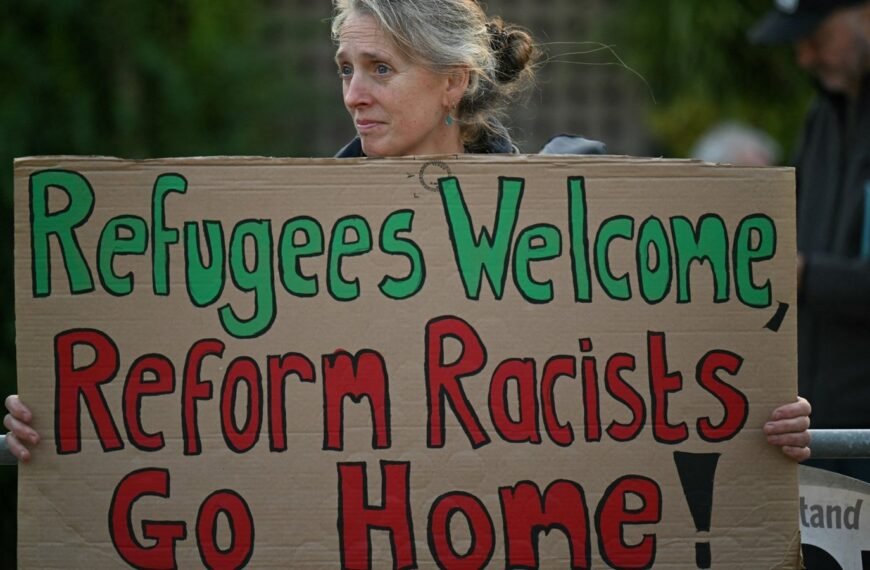 Refugees Welcome,
Reform Racists
Go Home!
tand